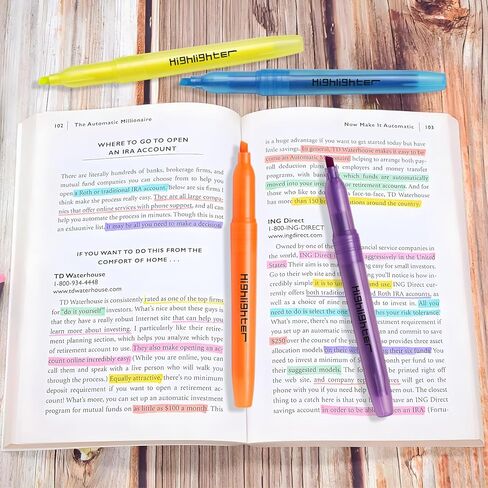 Highlighter
Highlighter
102 | The Automatic Millionaire
WHERE TO GO TO OPEN
AN IRA ACCOUNT
There are literally hundreds of banks, brokerage firms, and
mutual fund companies you can choose from to help you
open a Roth or traditional IRA account, below are six firms I
think make the process really easy. They are all large compa-
nies that offer online services with phone support, and all can
help you automate the process in minutes. Though this is not
an exhaustive list, it may be all you need to make a decision
IF YOU WANT TO DO THIS FROM THE
COMFORT OF HOME . . .
TD Waterhouse
1-800-934-4448
www.tdwaterhouse.com
TD Waterhouse is consistently rated as one of the top firms
for "do it yourself" investors. What's nice about these guys is
that they have a really robust Internet site, where you can help
learn more about investing. I particularly like their retire-
ment planning section, which helps you analyze which type
of retirement account to use. They also make opening an ac-
count online incredibly easy. (While you are online, you can
call them and speak with a live person who will walk you
through the process.) Equally attractive, there's no minimum
deposit requirement if you want to open a retirement ac-
count! What's more, you can set up an automatic investment
program for mutual funds on as little as $100 a month. This
Highlighter
Now Make It Automatic | 103
is a huge advantage if you want to get started today but have
little savings. to general, TD Waterhouse makes it easy to be
come an Automatic Millionaire helping to arrange both pay-
roll deduction plans, employers and money transfers
with banks, which funds are automatically
moved into your retirement accounts. And for
those who like to do face-to-face, TD Waterhouse
has more than 150 locations around the country.
ING Direct
1-800-ING-DIRECT
www.ingdirect.com
Owned by one of the financial service companies in
the world, ING Direct aggressively in the United
States. Their aim is to make investing easy for small investors.
Go to their web site and you'll notice how in-
credibly simple it is to and use, ING Direct cur-
rently offers both traditional and Roth IRA accounts, as
well as a choice of nine funds to invest in. All you
need to do is select the one that matches your risk tolerance!
What's more, there's no minimum investment requirement if
you set up an automatic plan and commit to save
$250 over the course of the provides three asset allocation
models on their web site these six funds. You do
need to invest a minimum of per month per fund in
their suggested models. The forms can be printed right off
the web site, and company representatives will get on the
phone with you if you need help filling them out. The closest
thing to a catch here is that you have an ING Direct
savings account in order to be able to open an IRA. (Fortu-
Highlighter